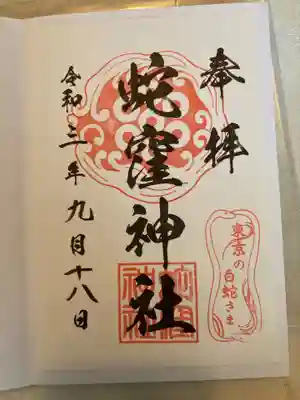 奉拝
東京の白蛇さま
蛇窪神社
令和三年九月十八日